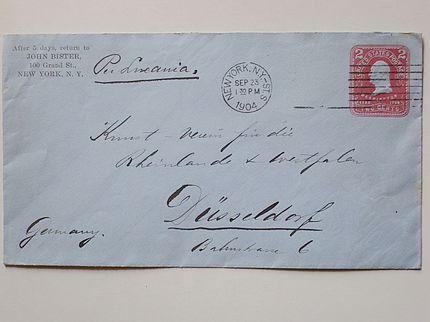 After 5 days, return to
JOHN BISTER,
100 Grand St.,
NEW YORK, N. Y.
Per Lucania.
NEW YORK, N.Y.
SEP 23
1 PM
1904
2 2
UNITED STATES
TWO CENTS
Kunst-Verein für die
Rheinlande & Westfalen
Düsseldorf
Bahnstrasse 6
Germany.